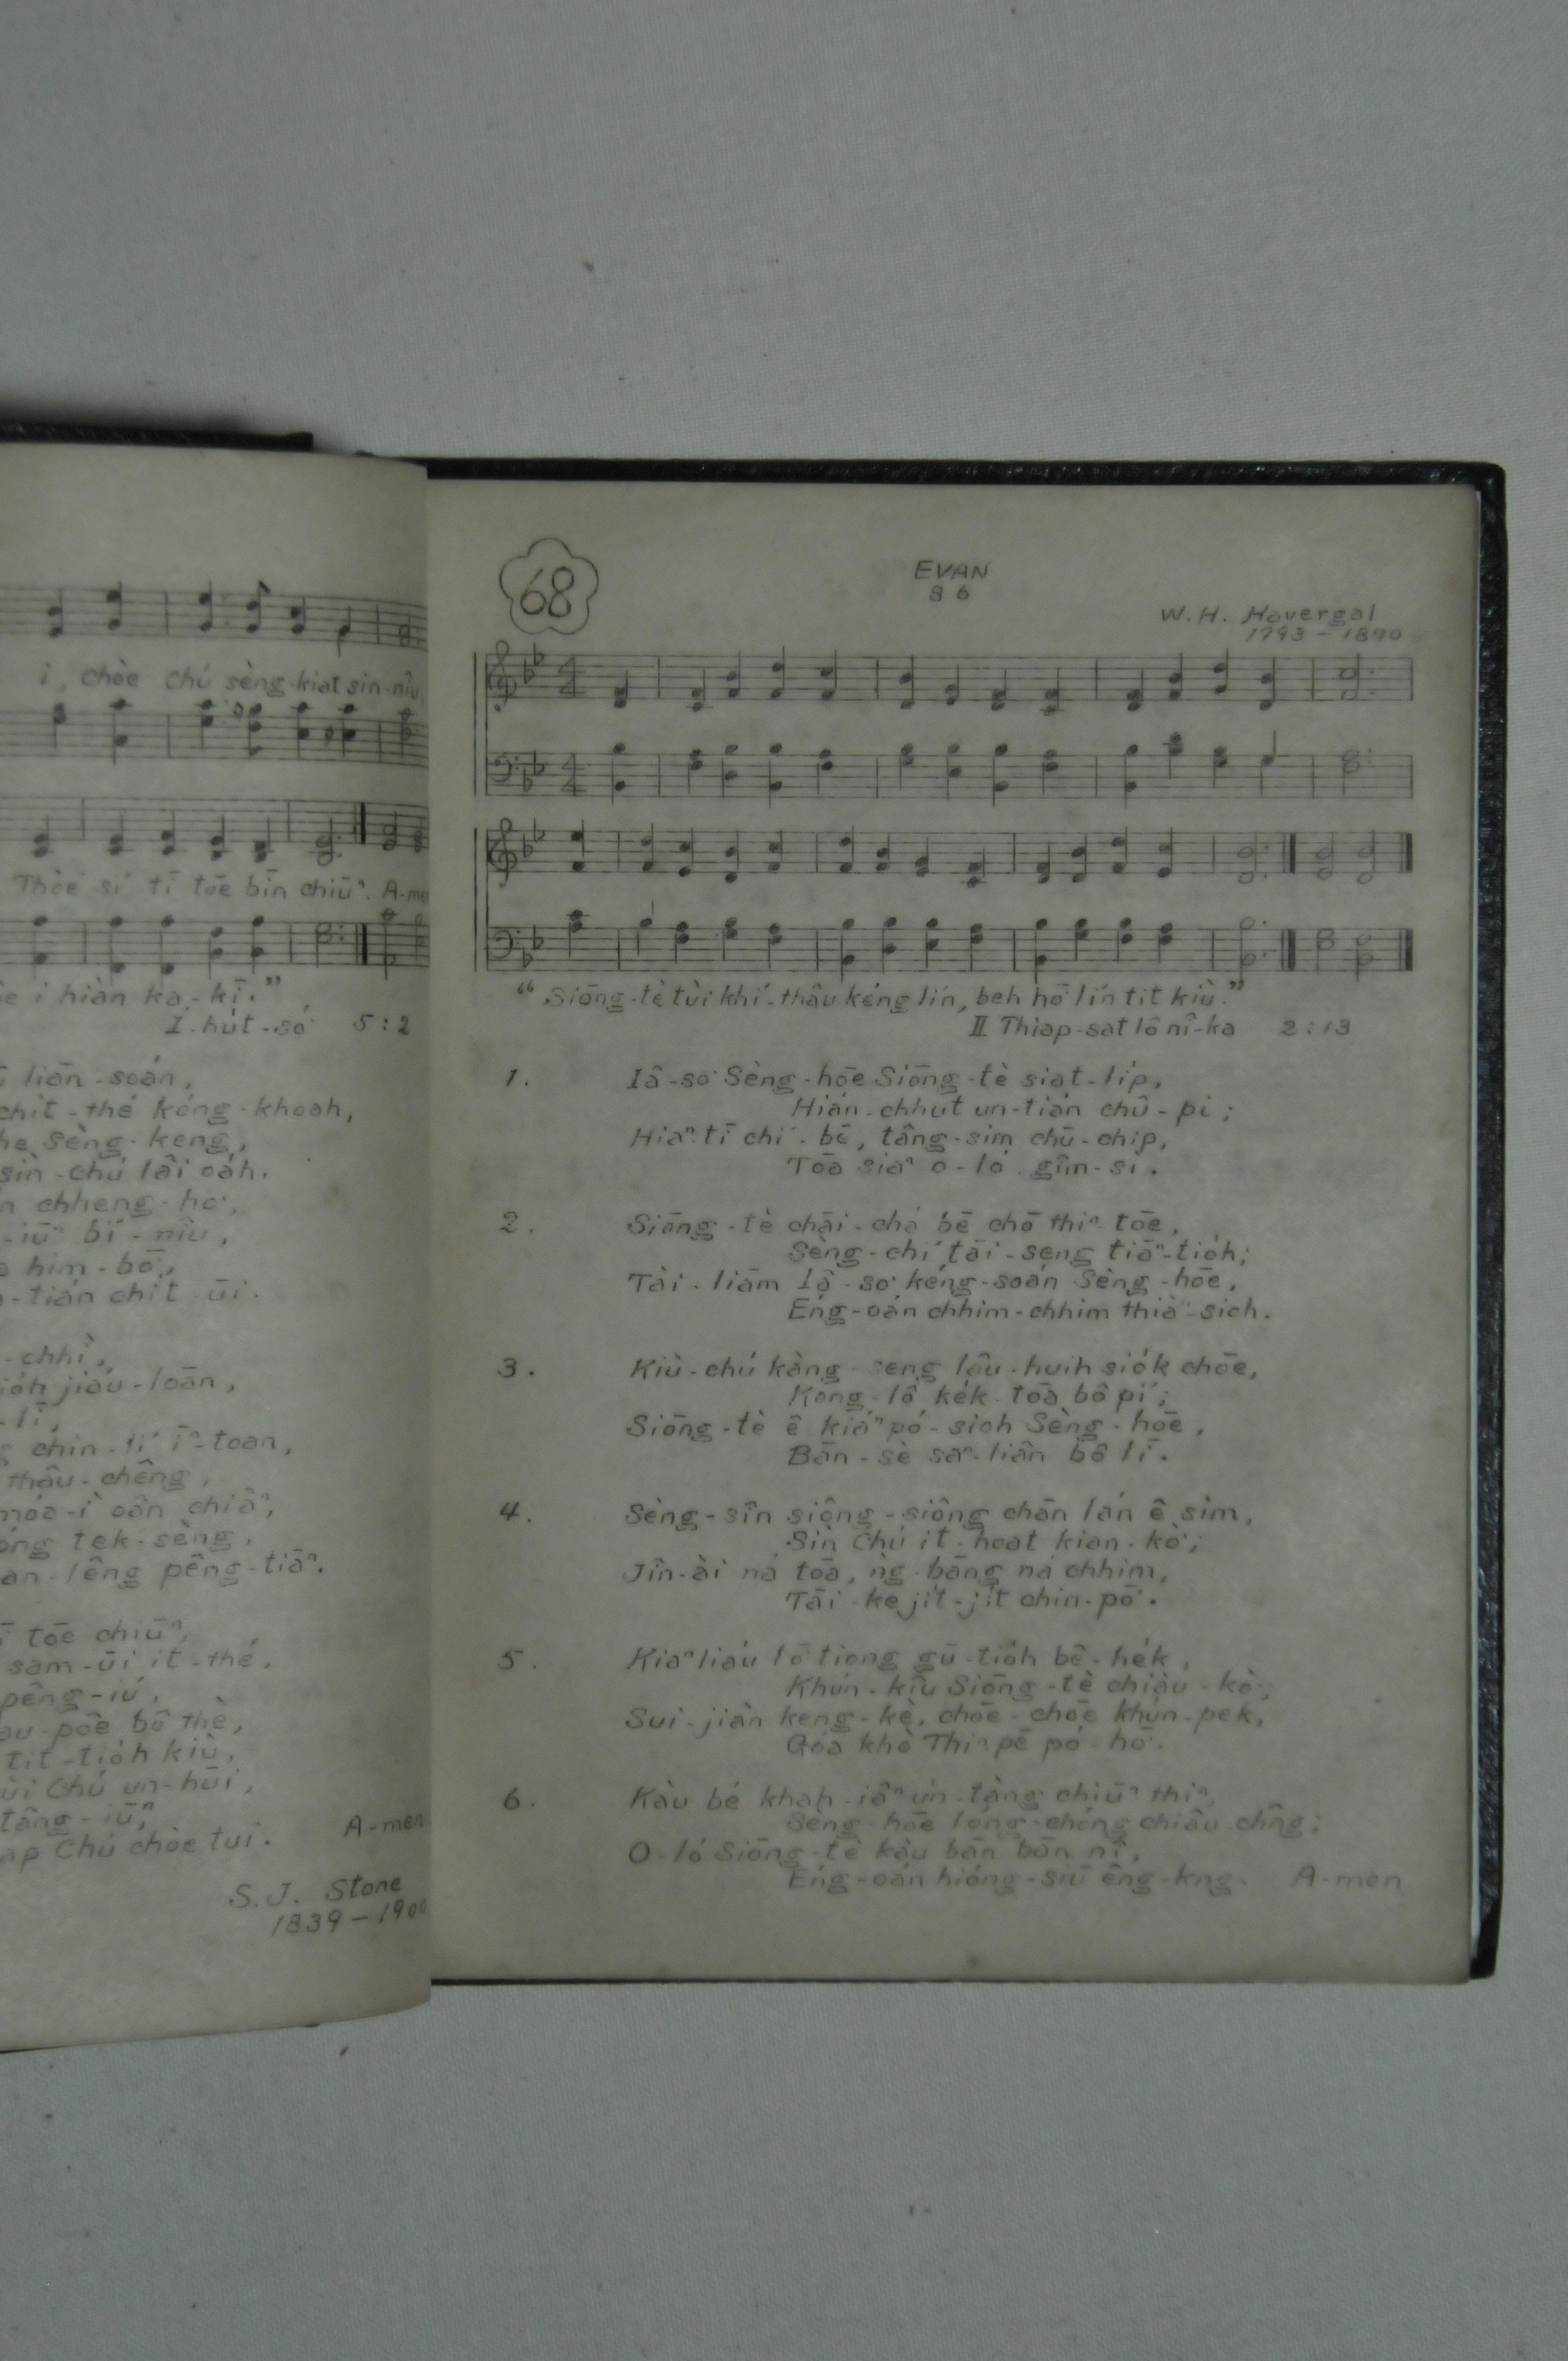 i, chòe chú sèng-kiat sin-niû,
Thòe sí tī tōe bīn chiūⁿ. A-me
i hiàn ka-kī."
Í-hut-só͘ 5:2
liān-soán,
chit-thé kóng-khoah,
he sèng-keng,
sìn-chú lâi oáh.
chheng-ho͘,
-iūⁿ bí-niū,
him-bō͘,
-tián chit-ūi.
-chhì,
jiáu-loān,
-lī,
chin-lí īⁿ-toan,
thâu-chêng,
móa-ì oân chiâⁿ,
óng tek-sèng,
an-lêng pêng-tiāⁿ.
tōe chiūⁿ,
sam-ūi it-thé,
pêng-iú,
au-pôe bô thè,
tit-tio̍h kiù,
ùi Chú un-hūi,
tâng-iūⁿ,
ap Chú chòe tui. A-men
S.J. Stone
1839-1900
68
EVAN
8 6
W.H. Havergal
1793-1870
"Siōng-tè tùi khí-thâu kéng lín, beh hō͘ lín tit kiù."
II Thiap-sat lô nî-ka 2:13
1. Iâ-so͘ Sèng-hōe Siōng-tè siat-li̍p,
Hián-chhut un-tián chû-pi;
Hiaⁿ-tī chí-bē, tâng-sim chū-chip,
Tōa siaⁿ o-ló gîm-si.
2. Siōng-tè chāi-chá bē chō thiⁿ-tōe,
Sèng-chí tāi-seng tiāⁿ-tio̍h;
Tài-liām Iâ-so͘ kéng-soán Sèng-hōe,
Éng-oán chhim-chhim thiàⁿ-sioh.
3. Kiù-chú kàng-seng lâu-huih sio̍k chōe,
Kong-lô ke̍k-tōa bô pí;
Siōng-tè ê kiáⁿ pó-sioh Sèng-hōe,
Bān-sè saⁿ-liân bô lī.
4. Sèng-sîn siông-siông chān lán ê sim,
Sìn Chú it-hoat kian-kò͘;
Jîn-ài ná tōa, ǹg-bāng ná chhim,
Tāi-ke ji̍t-ji̍t chìn-pō͘.
5. Kiaⁿ liáu lō͘ tiong gū-tio̍h bê-he̍k,
Khún-kiû Siōng-tè chiàu-kò͘;
Sui-jiân keng-kè, chōe-chōe khùn-pek,
Góa khò Thiⁿ-pē pó-hō͘.
6. Kàu bé khah-iâⁿ ún-tàng chiūⁿ thiⁿ,
Sèng-hōe lóng-chóng chiâu-chn̂g;
O-ló Siōng-tè kàu bān bān nî,
Éng-oán hióng-siū êng-kng. A-men